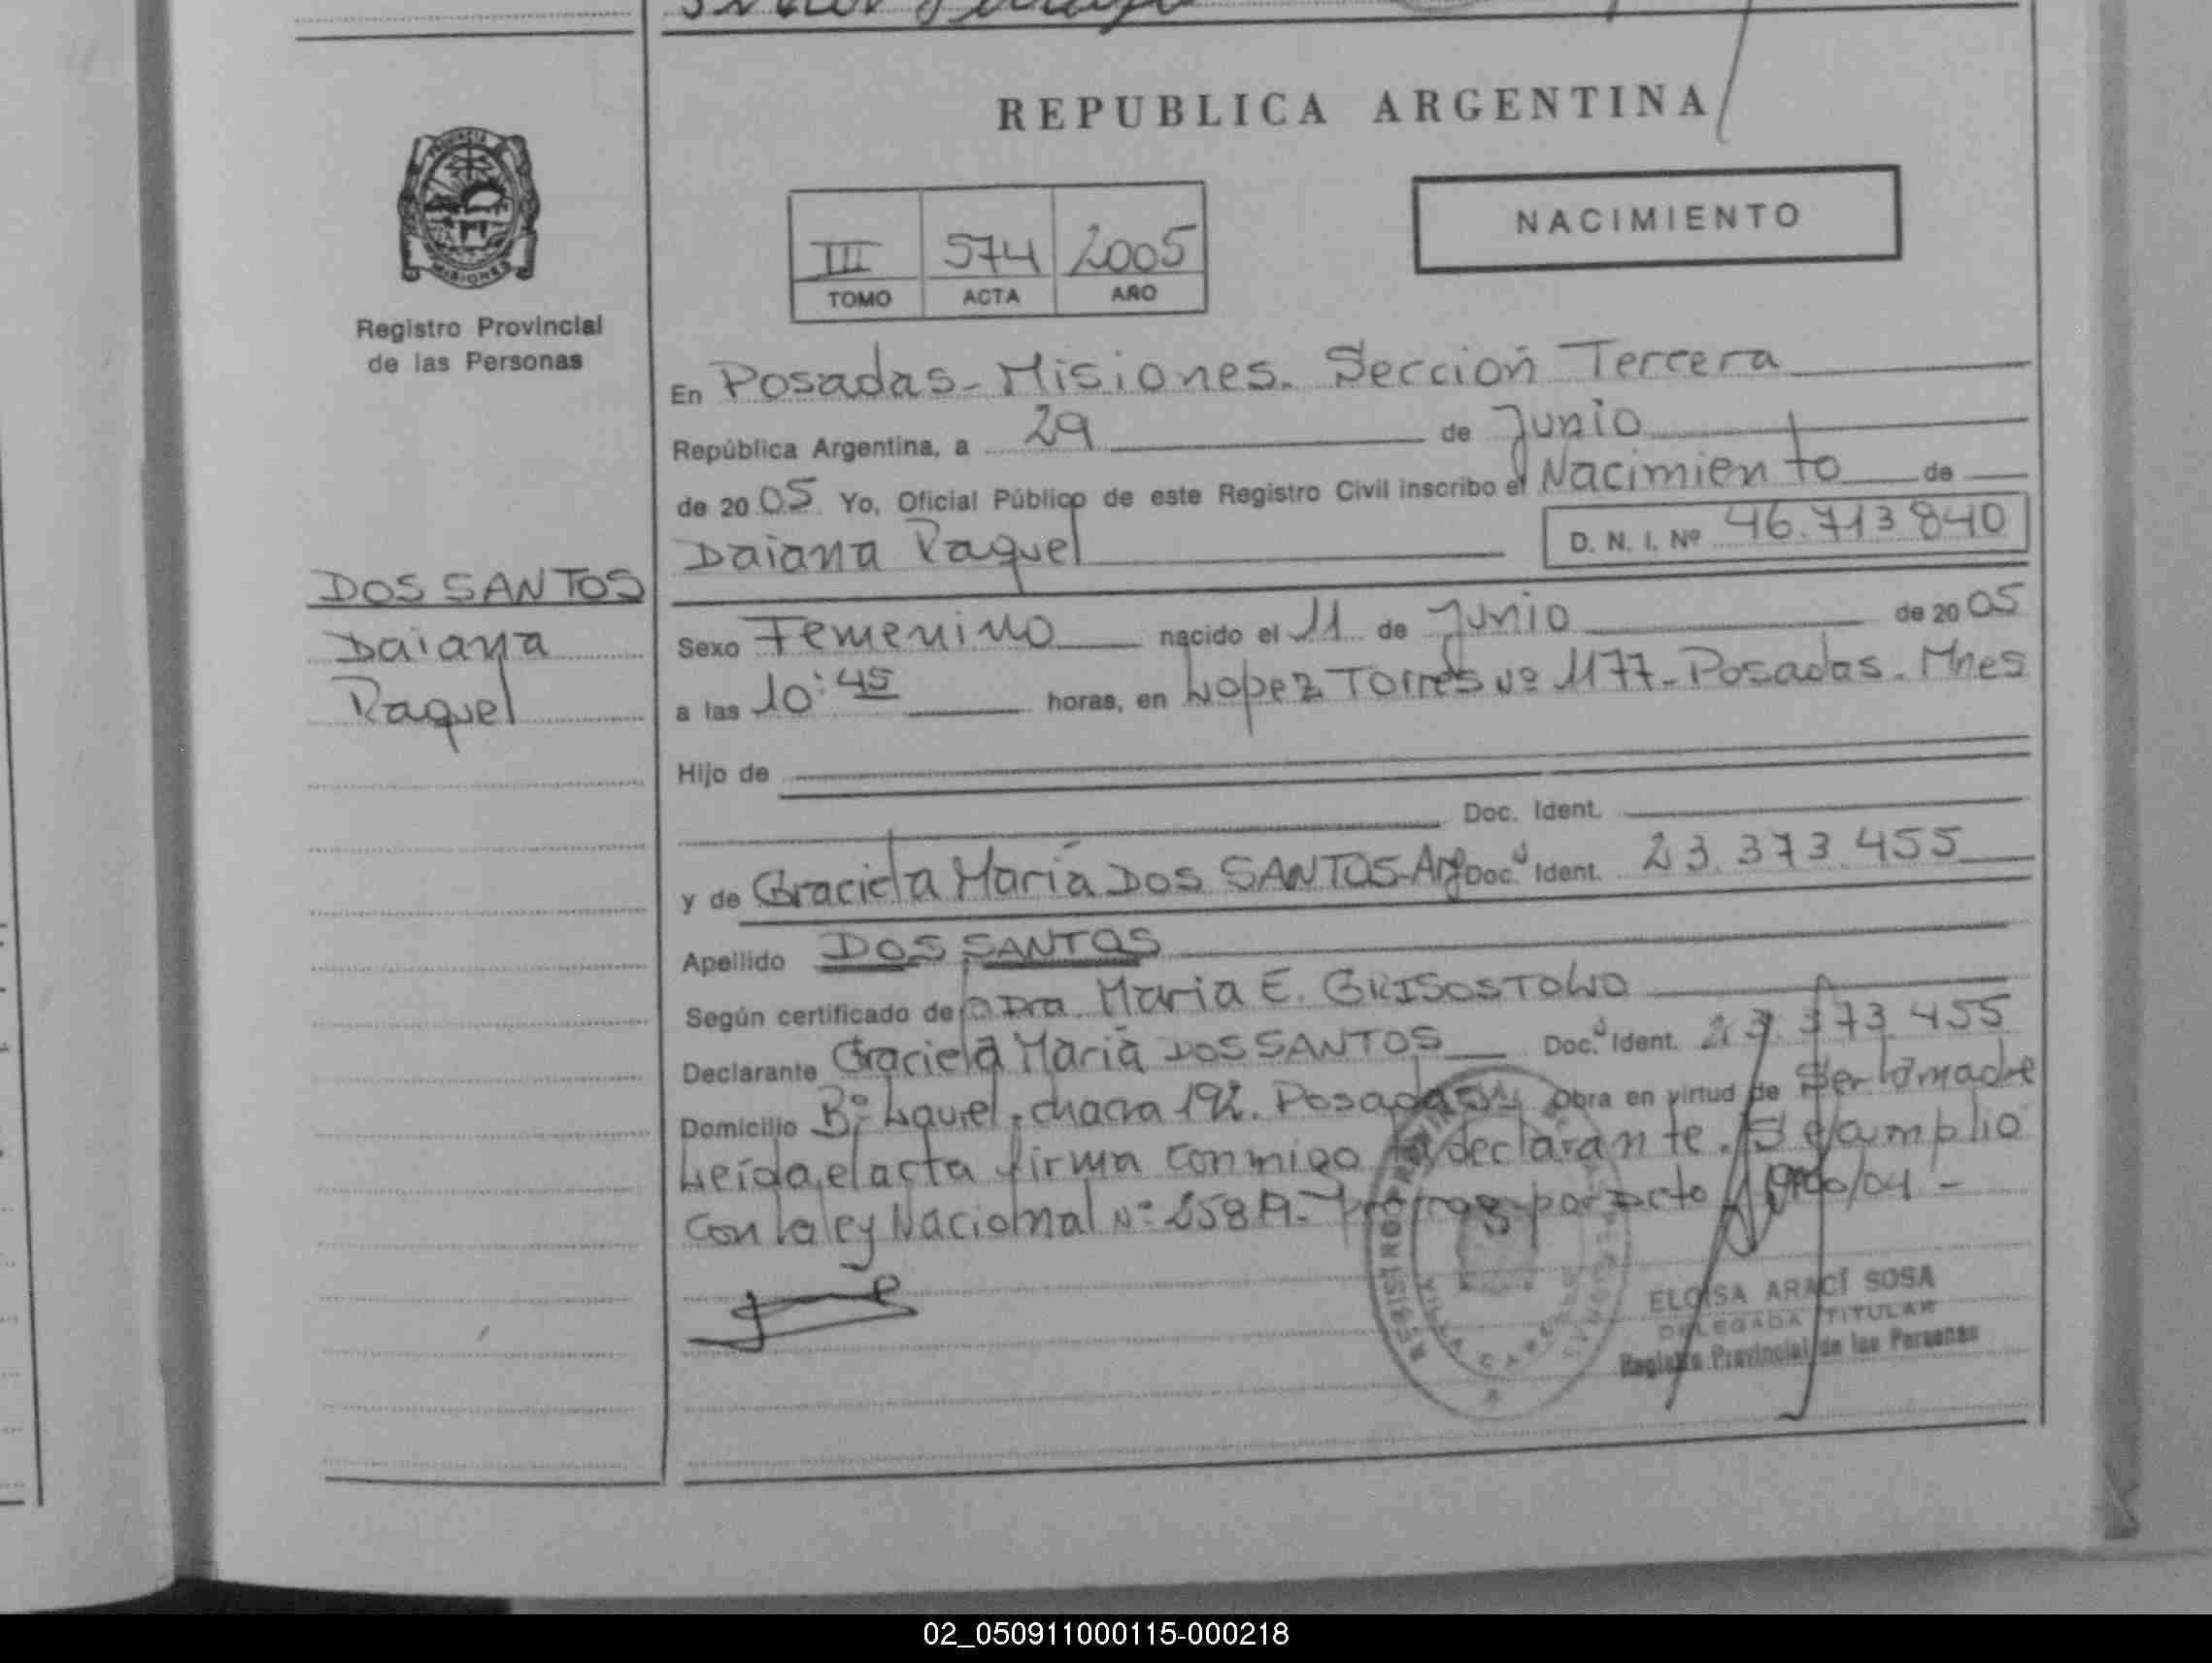 REPUBLICA ARGENTINA
PROVINCIA
MISIONES
Registro Provincial
de las Personas
NACIMIENTO
III 574 2005
TOMO ACTA AÑO
En Posadas - Misiones. Sección Tercera
República Argentina, a 29 de Junio
de 2005 Yo, Oficial Público de este Registro Civil inscribo el Nacimiento de
Daiana Raquel D. N. I. Nº 46.713840
DOS SANTOS
Daiana
Raquel
Sexo Femenino nacido el 11 de Junio de 2005
a las 10:45 horas, en Lopez Torres Nº 1177 - Posadas - Mnes
Hijo de
Doc. Ident.
y de Graciela María DOS SANTOS - Arg Doc. Ident. 23.373.455
Apellido DOS SANTOS
Según certificado de la Dra. Maria E. GRISOSTOMO
Declarante Graciela María DOS SANTOS Doc. Ident. 23.373.455
Domicilio Bº Laurel. chacra 192. Posadas Obra en virtud de Ser la madre
Leída el acta firma conmigo la declarante. Se amplio
con la ley Nacional Nº 25819 - por Dcto /04 -
REGISTRO
VILLA CABELLO
ELOISA ARACÍ SOSA
DELEGADA TITULAR
Registro Provincial de las Personas
02_050911000115-000218